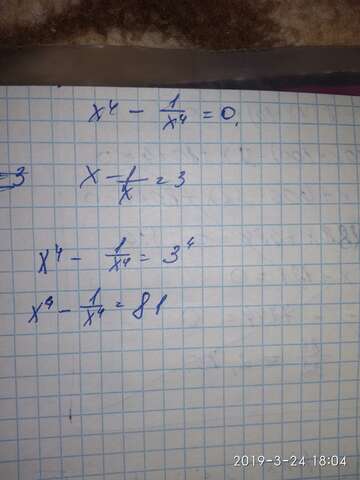 x⁴ - 1/x⁴ = 0.
=3 x - 1/x = 3
x⁴ - 1/x⁴ = 3⁴
x⁴ - 1/x⁴ = 81
2019-3-24 18:04